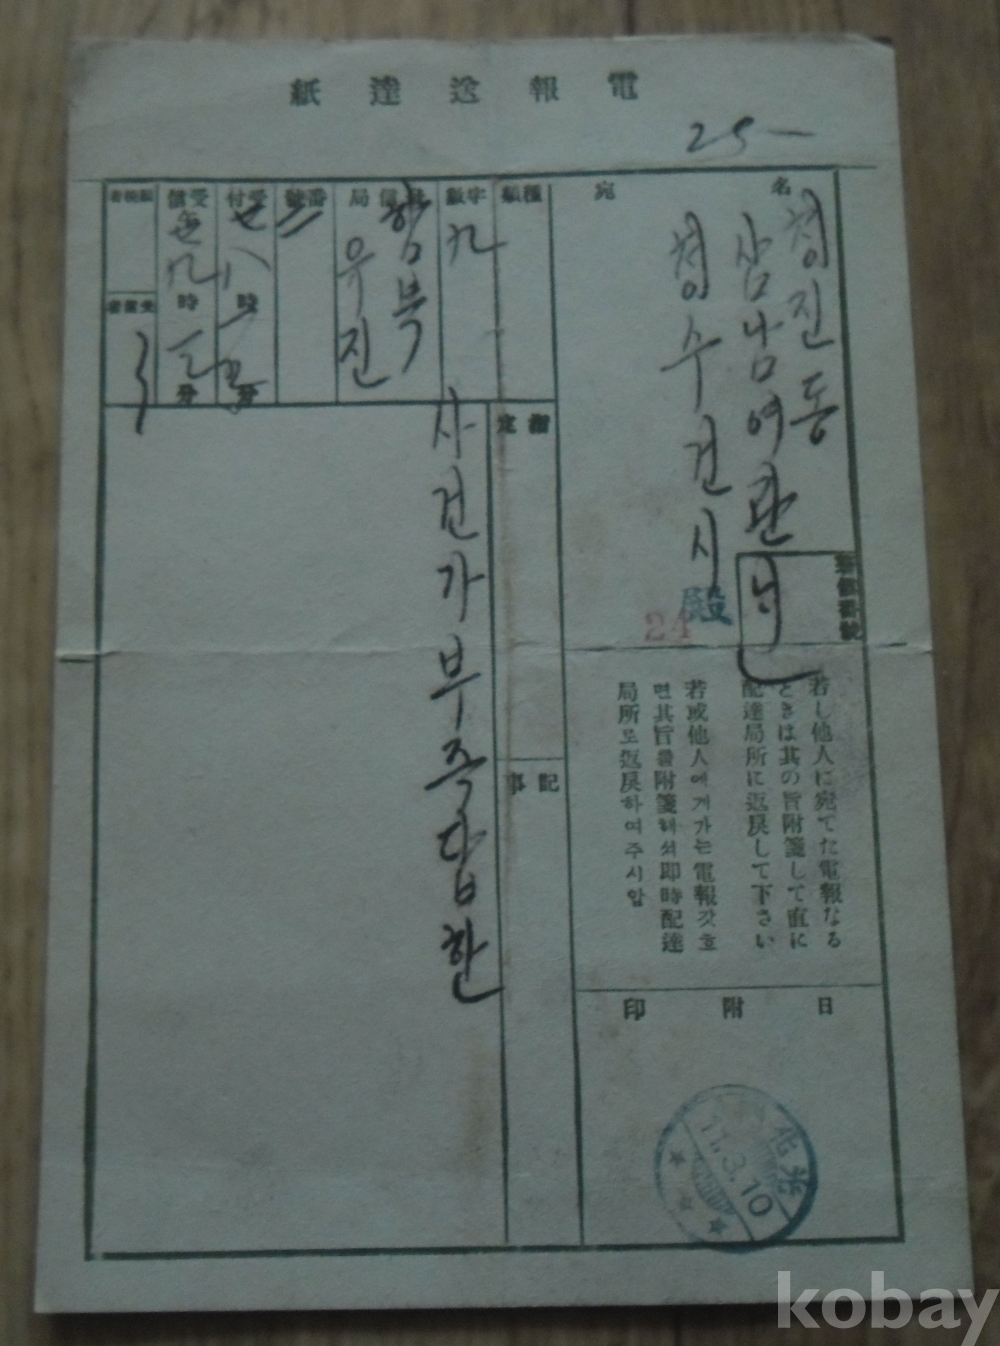 電報送達紙
25—
宛名
청진동
삼남여관
청수건시
殿
24
種類
字數
九
發信局
함북
우진
番號
受付
時
分
受信
時
分
指定
사건가부즉답한
記事
若し他人に宛てた電報なる
ときは其の旨附箋して直に
配達局所に返戾して下さい
若或他人에게가는電報갓흐
면其旨를附箋해셔卽時配達
局所로返戾하여주시압
日附印
11.3.10
kobay